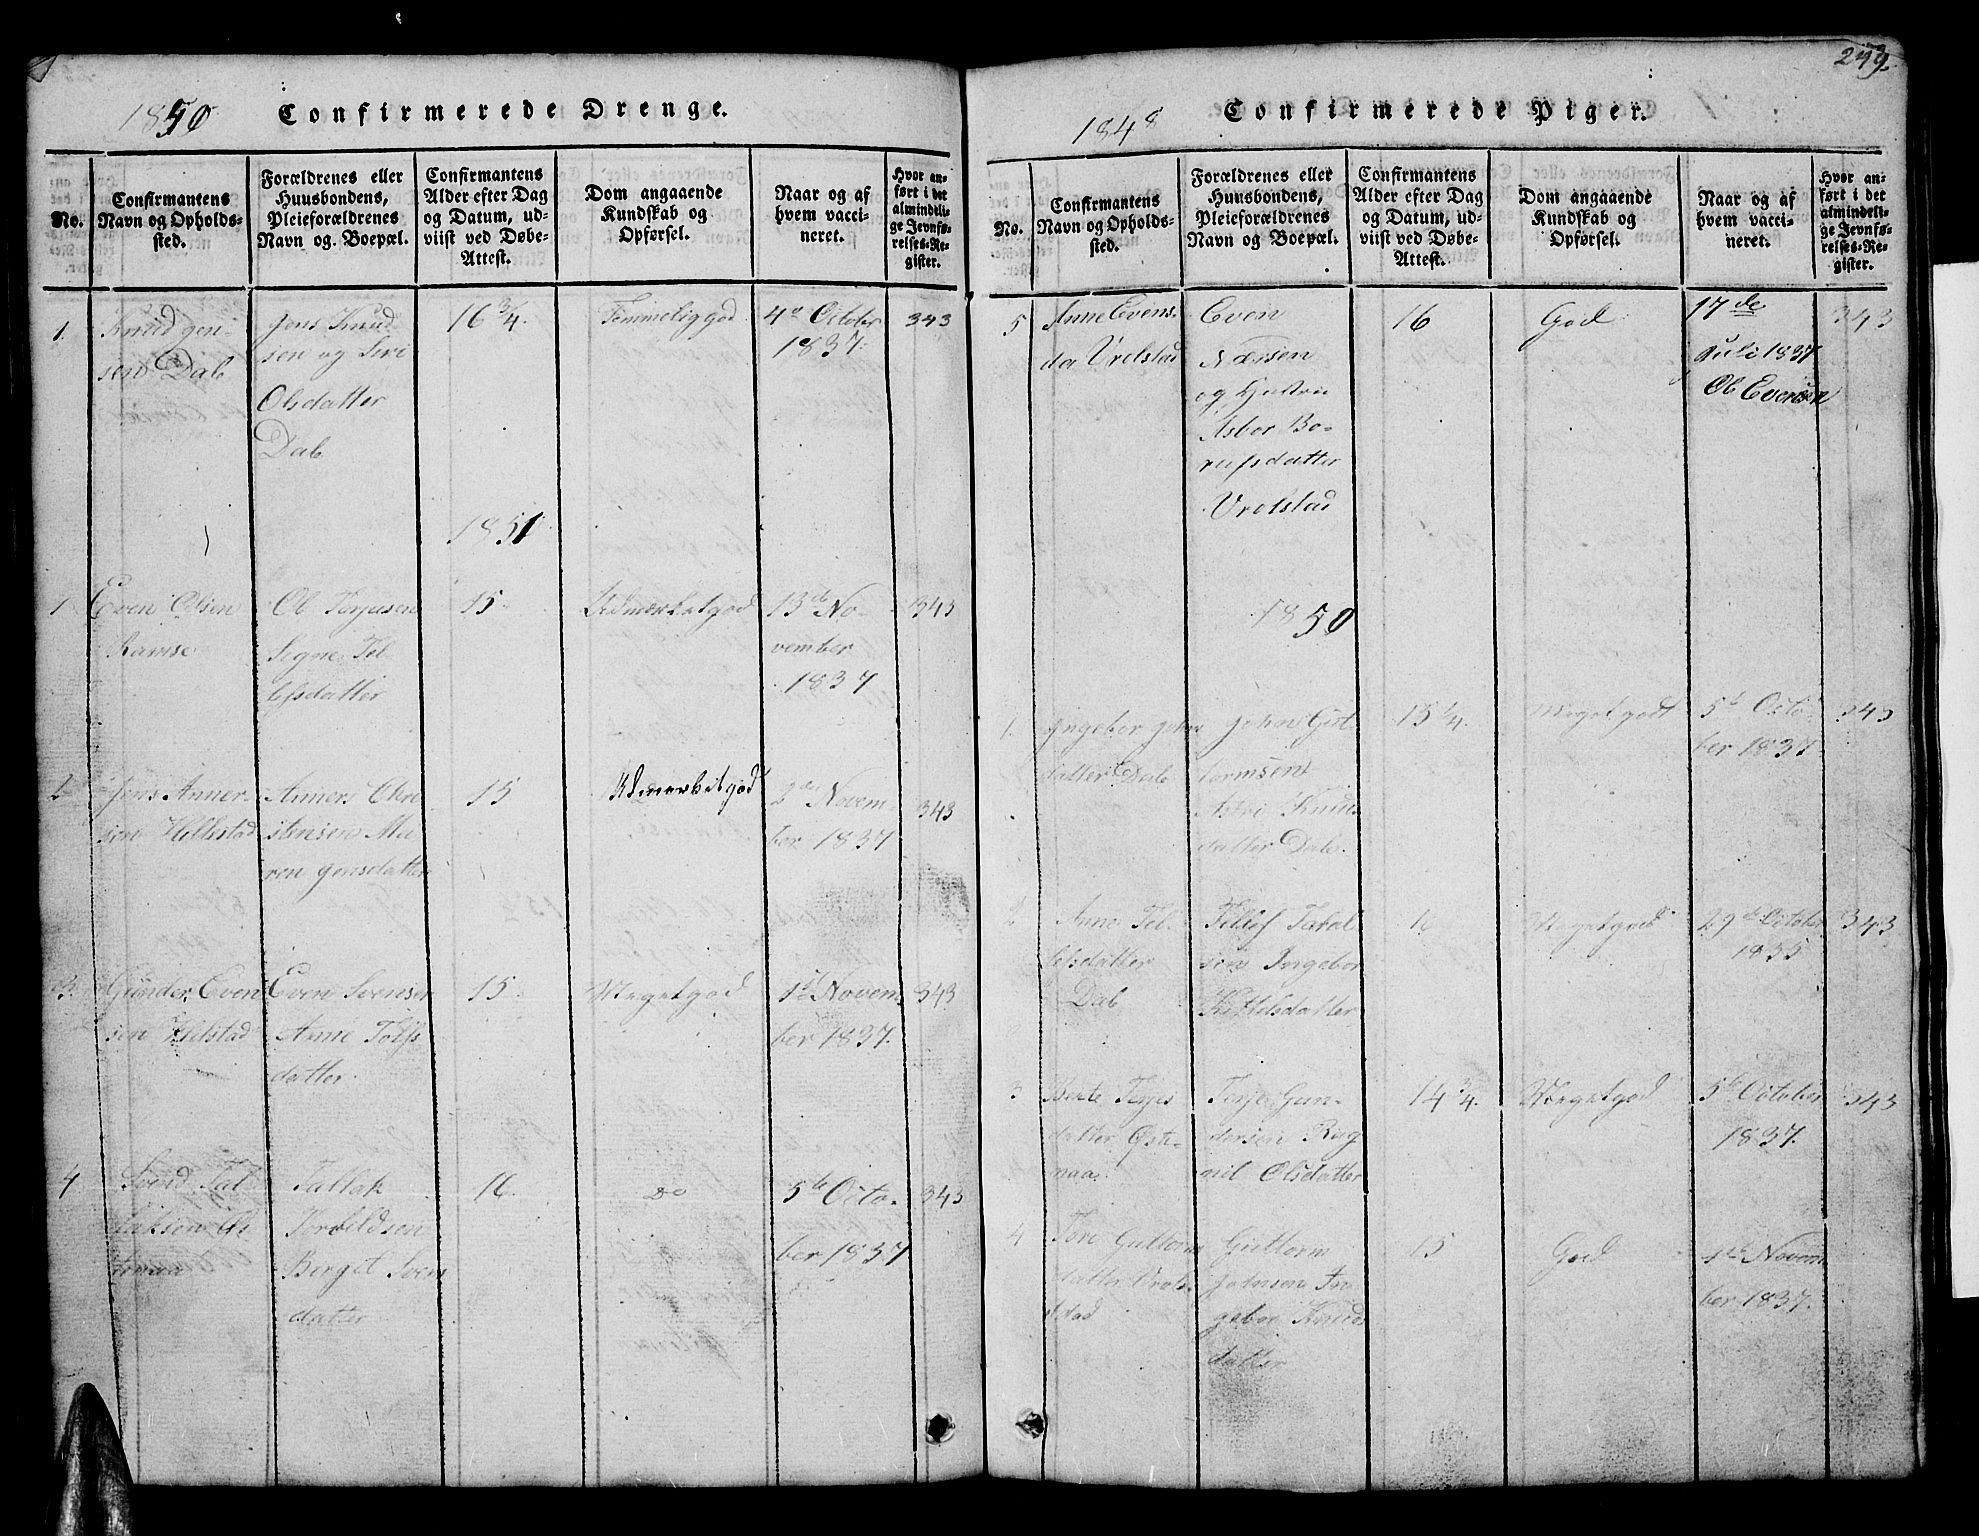 249.
1850 Confirmerede Drenge.
No.
Confirmantens
Navn og Opholds-
sted.
Forældrenes eller
Huusbondens,
Pleieforældrenes
Navn og Boepæl.
Confirmantens
Alder efter Dag
og Datum, ud-
viist ved Døbe-
Attest.
Dom angaaende
Kundskab og
Opførsel.
Naar og af
hvem vacci-
neret.
Hvor an-
ført i det
almindeli-
ge Jevnfø-
relses-Re-
gister.
1.
Knud Jen-
sen Dale
Jens Knud
sen og Siri
Olsdatter
Dale
16 3/4.
Temmelig god
4de October
1837.
343
1851
1
Even Olsen
Ramse
Ole Terjusen
Signe Tel
lefsdatter
15
Udmærket god
13de No-
vember
1837
343
2
Jens Anner
sen Hillestad
Anners Chri
stensen Ma
ren Jensdatter
15
Udmærket god
2den Novem
ber 1837
343
3.
Gunder Even
sen Hilstad
Even Svensen
Anne Tolfs
datter.
15.
Meget god
1ste Novem
ber 1837.
343
4
Svend Tal
laksen
Tallak
Torkildsen
Birgit Sven
datter
16.
Do
5te Octo-
ber 1837
343
1848 Confirmerede Piger.
No.
Confirmantens
Navn og Opholds-
sted.
Forældrenes eller
Huusbondens,
Pleieforældrenes
Navn og Boepæl.
Confirmantens
Alder efter Dag
og Datum, ud-
viist ved Døbe-
Attest.
Dom angaaende
Kundskab og
Opførsel.
Naar og af
hvem vacci-
neret.
Hvor an-
ført i det
almindeli-
ge Jevnfø-
relses-Re-
gister.
5
Anne Evens-
da Vrelstad
Even
Næssen
og Hustru
Asbor Bo-
rufsdatter
Vrolstad
16
God
17de
Juli 1837
Ole Evensen
343
1850
1.
Ingebor John
datter Dale
John Gut
tormsen
Astri Knuds
datter Dale.
15 1/4.
Meget godt
5te Octo
ber 1837
343
2
Anne Tel
lefsdatter
Dale
Tellef Taral
sen Ingebor
Kittelsdatter
16
Meget god
29de October
1835
343
3
Berte Terjes
datter Øste-
naa.
Terje Gun-
dersen Rag
nil Olsdatter
14 3/4.
Meget god
5te October
1837.
343
4
Tore Guttorm
datter Vrols
stad
Guttorm
Johnsen In
gebor Knuds
datter
15
God
1ste Novem
ber 1837.